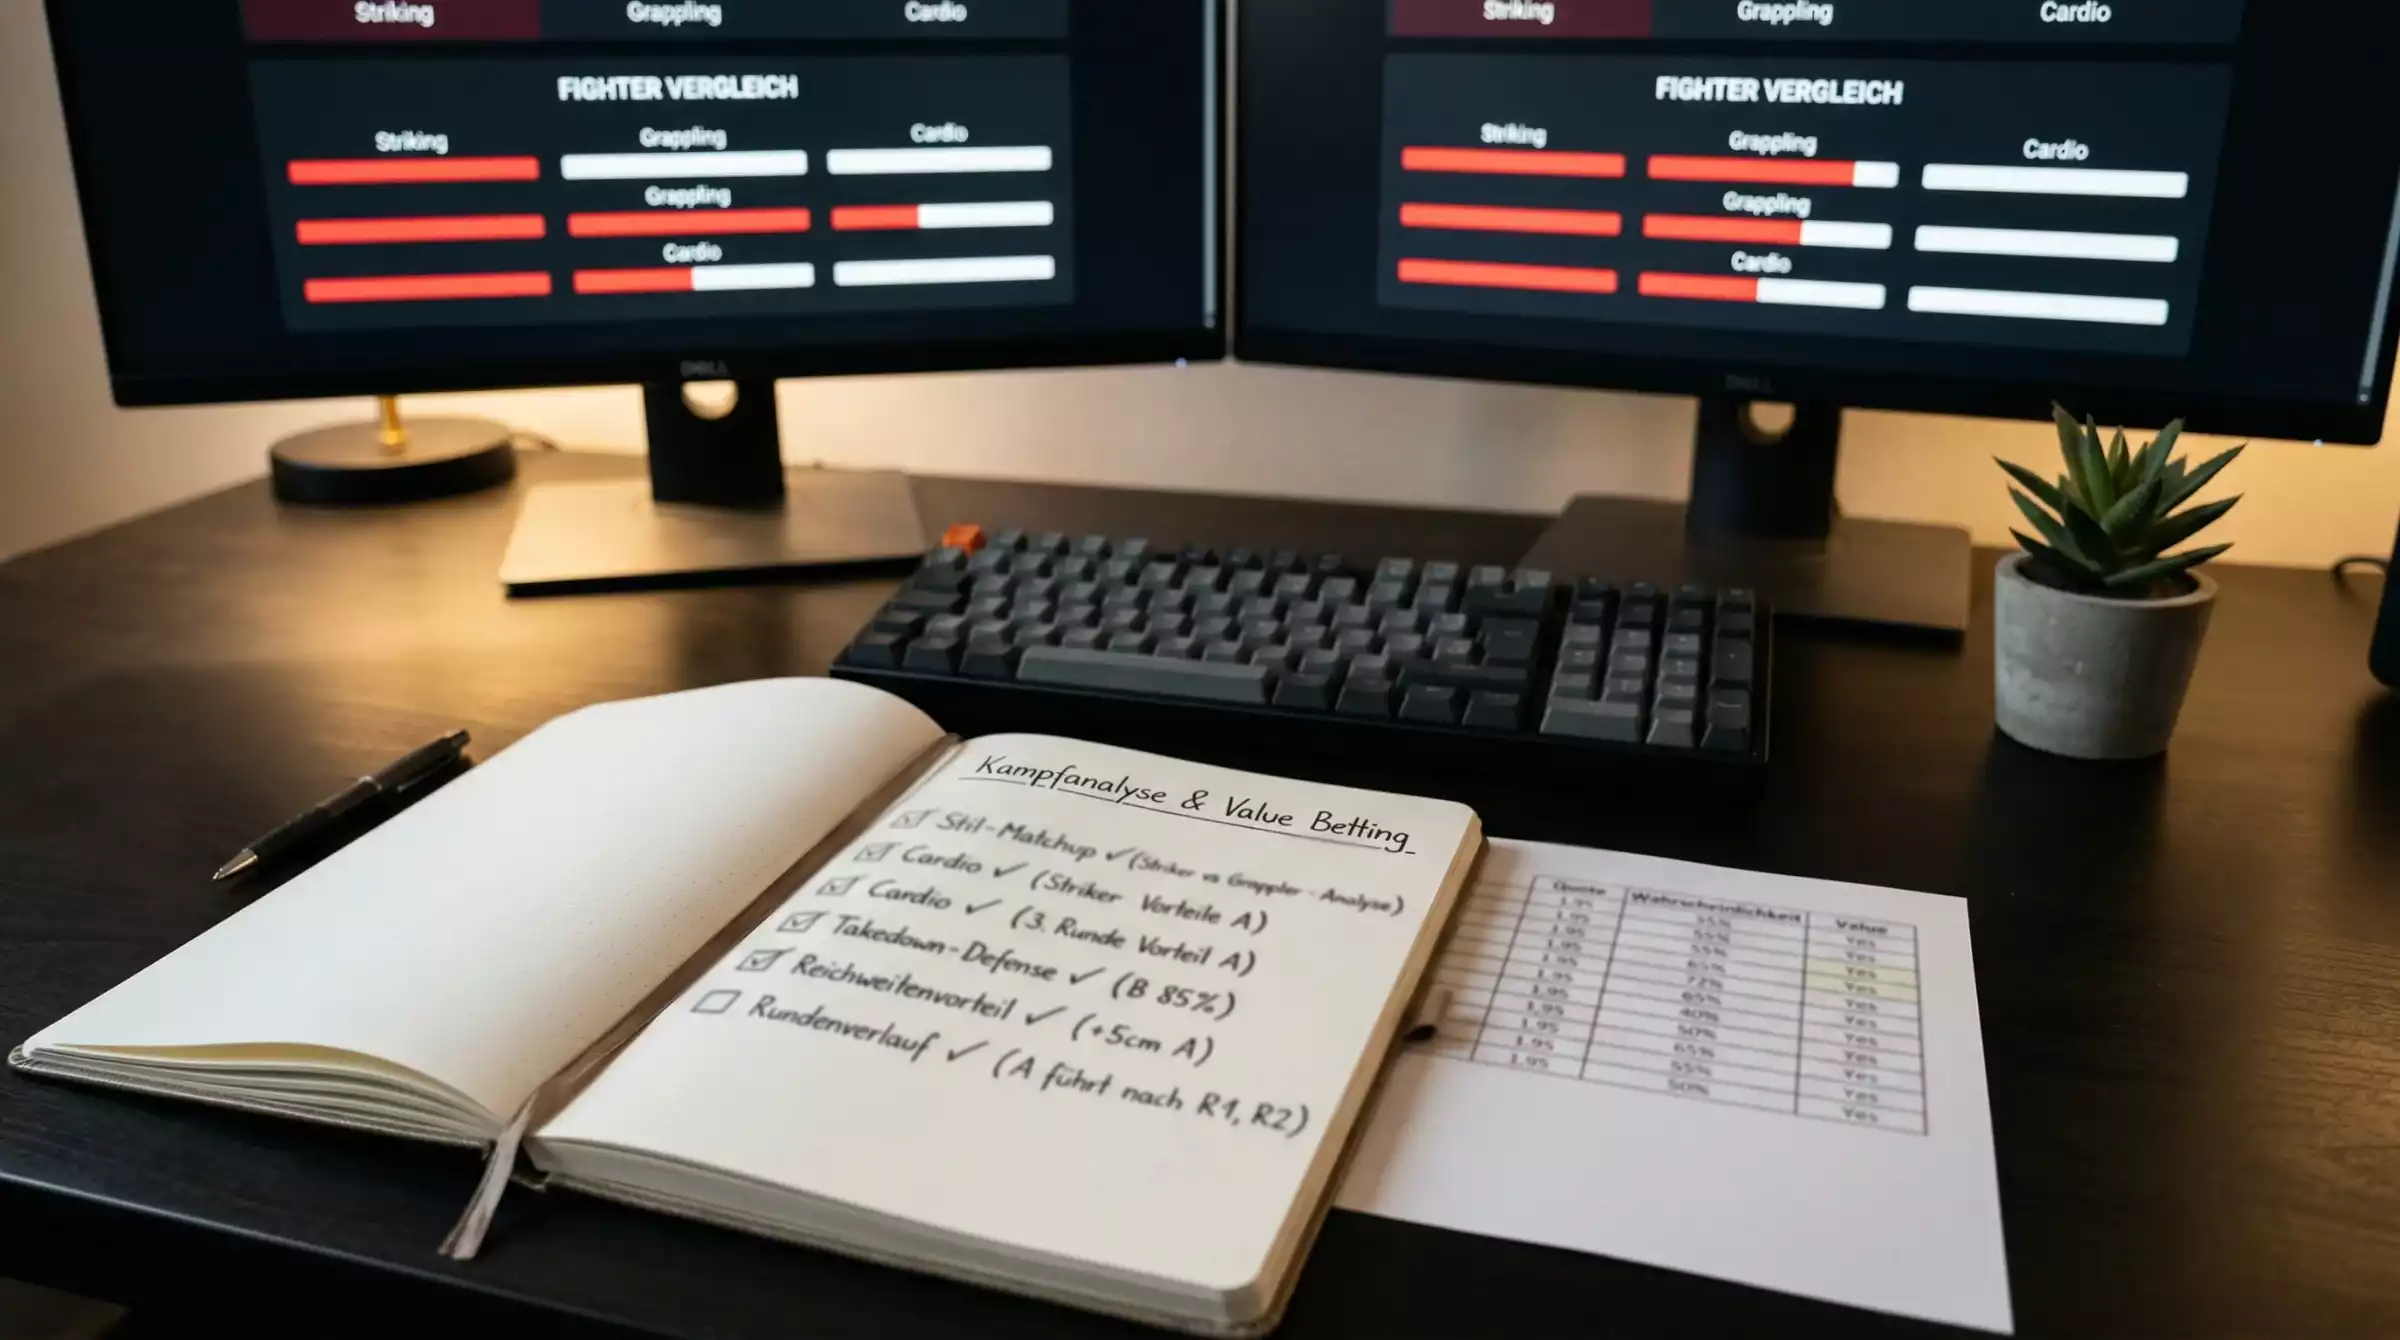 Striking Grappling Cardio
FIGHTER VERGLEICH
Striking Grappling Cardio
Grappling
Cardio
DELL
Striking Grappling Cardio
FIGHTER VERGLEICH
Striking Grappling Cardio
Grappling
Cardio
DELL
Kampfanalyse & Value Betting
Stil-Matchup ✓ (Striker vs Grappler - Analyse)
Cardio ✓ (Striker Vorteile A)
Cardio ✓ (3. Runde Vorteil A)
Takedown-Defense ✓ (B 85%)
Reichweitenvorteil ✓ (+5cm A)
Rundenverlauf ✓ (A führt nach R1, R2)
Quote Wahrscheinlichkeit Value
1.95 55% Yes
1.95 55% Yes
1.95 55% Yes
1.95 65% Yes
1.95 72% Yes
1.95 65% Yes
1.95 40% Yes
1.95 50% Yes
1.95 65% Yes
55% Yes
50% Yes